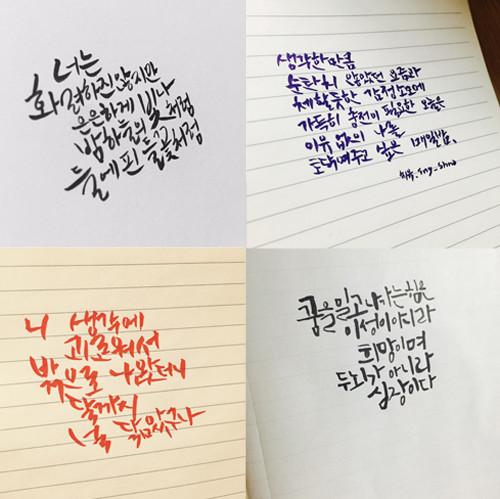 너는
화려하진 않지만
은은하게 빛나
밤하늘의 별처럼
들에 핀 들꽃처럼
생각한 만큼
순탄치 않았던 요즘과
체할듯한 감정노동에
가득히 충전이 필요한 오늘은
이유 없이 나를
토닥여주고 싶은 매일밤.
니 생각에
괴로워서
밖으로 나왔더니
달까지
널 닮았구나
꿈을 밀고 나가는 힘은
이성이 아니라
희망이며
두뇌가 아니라
심장이다